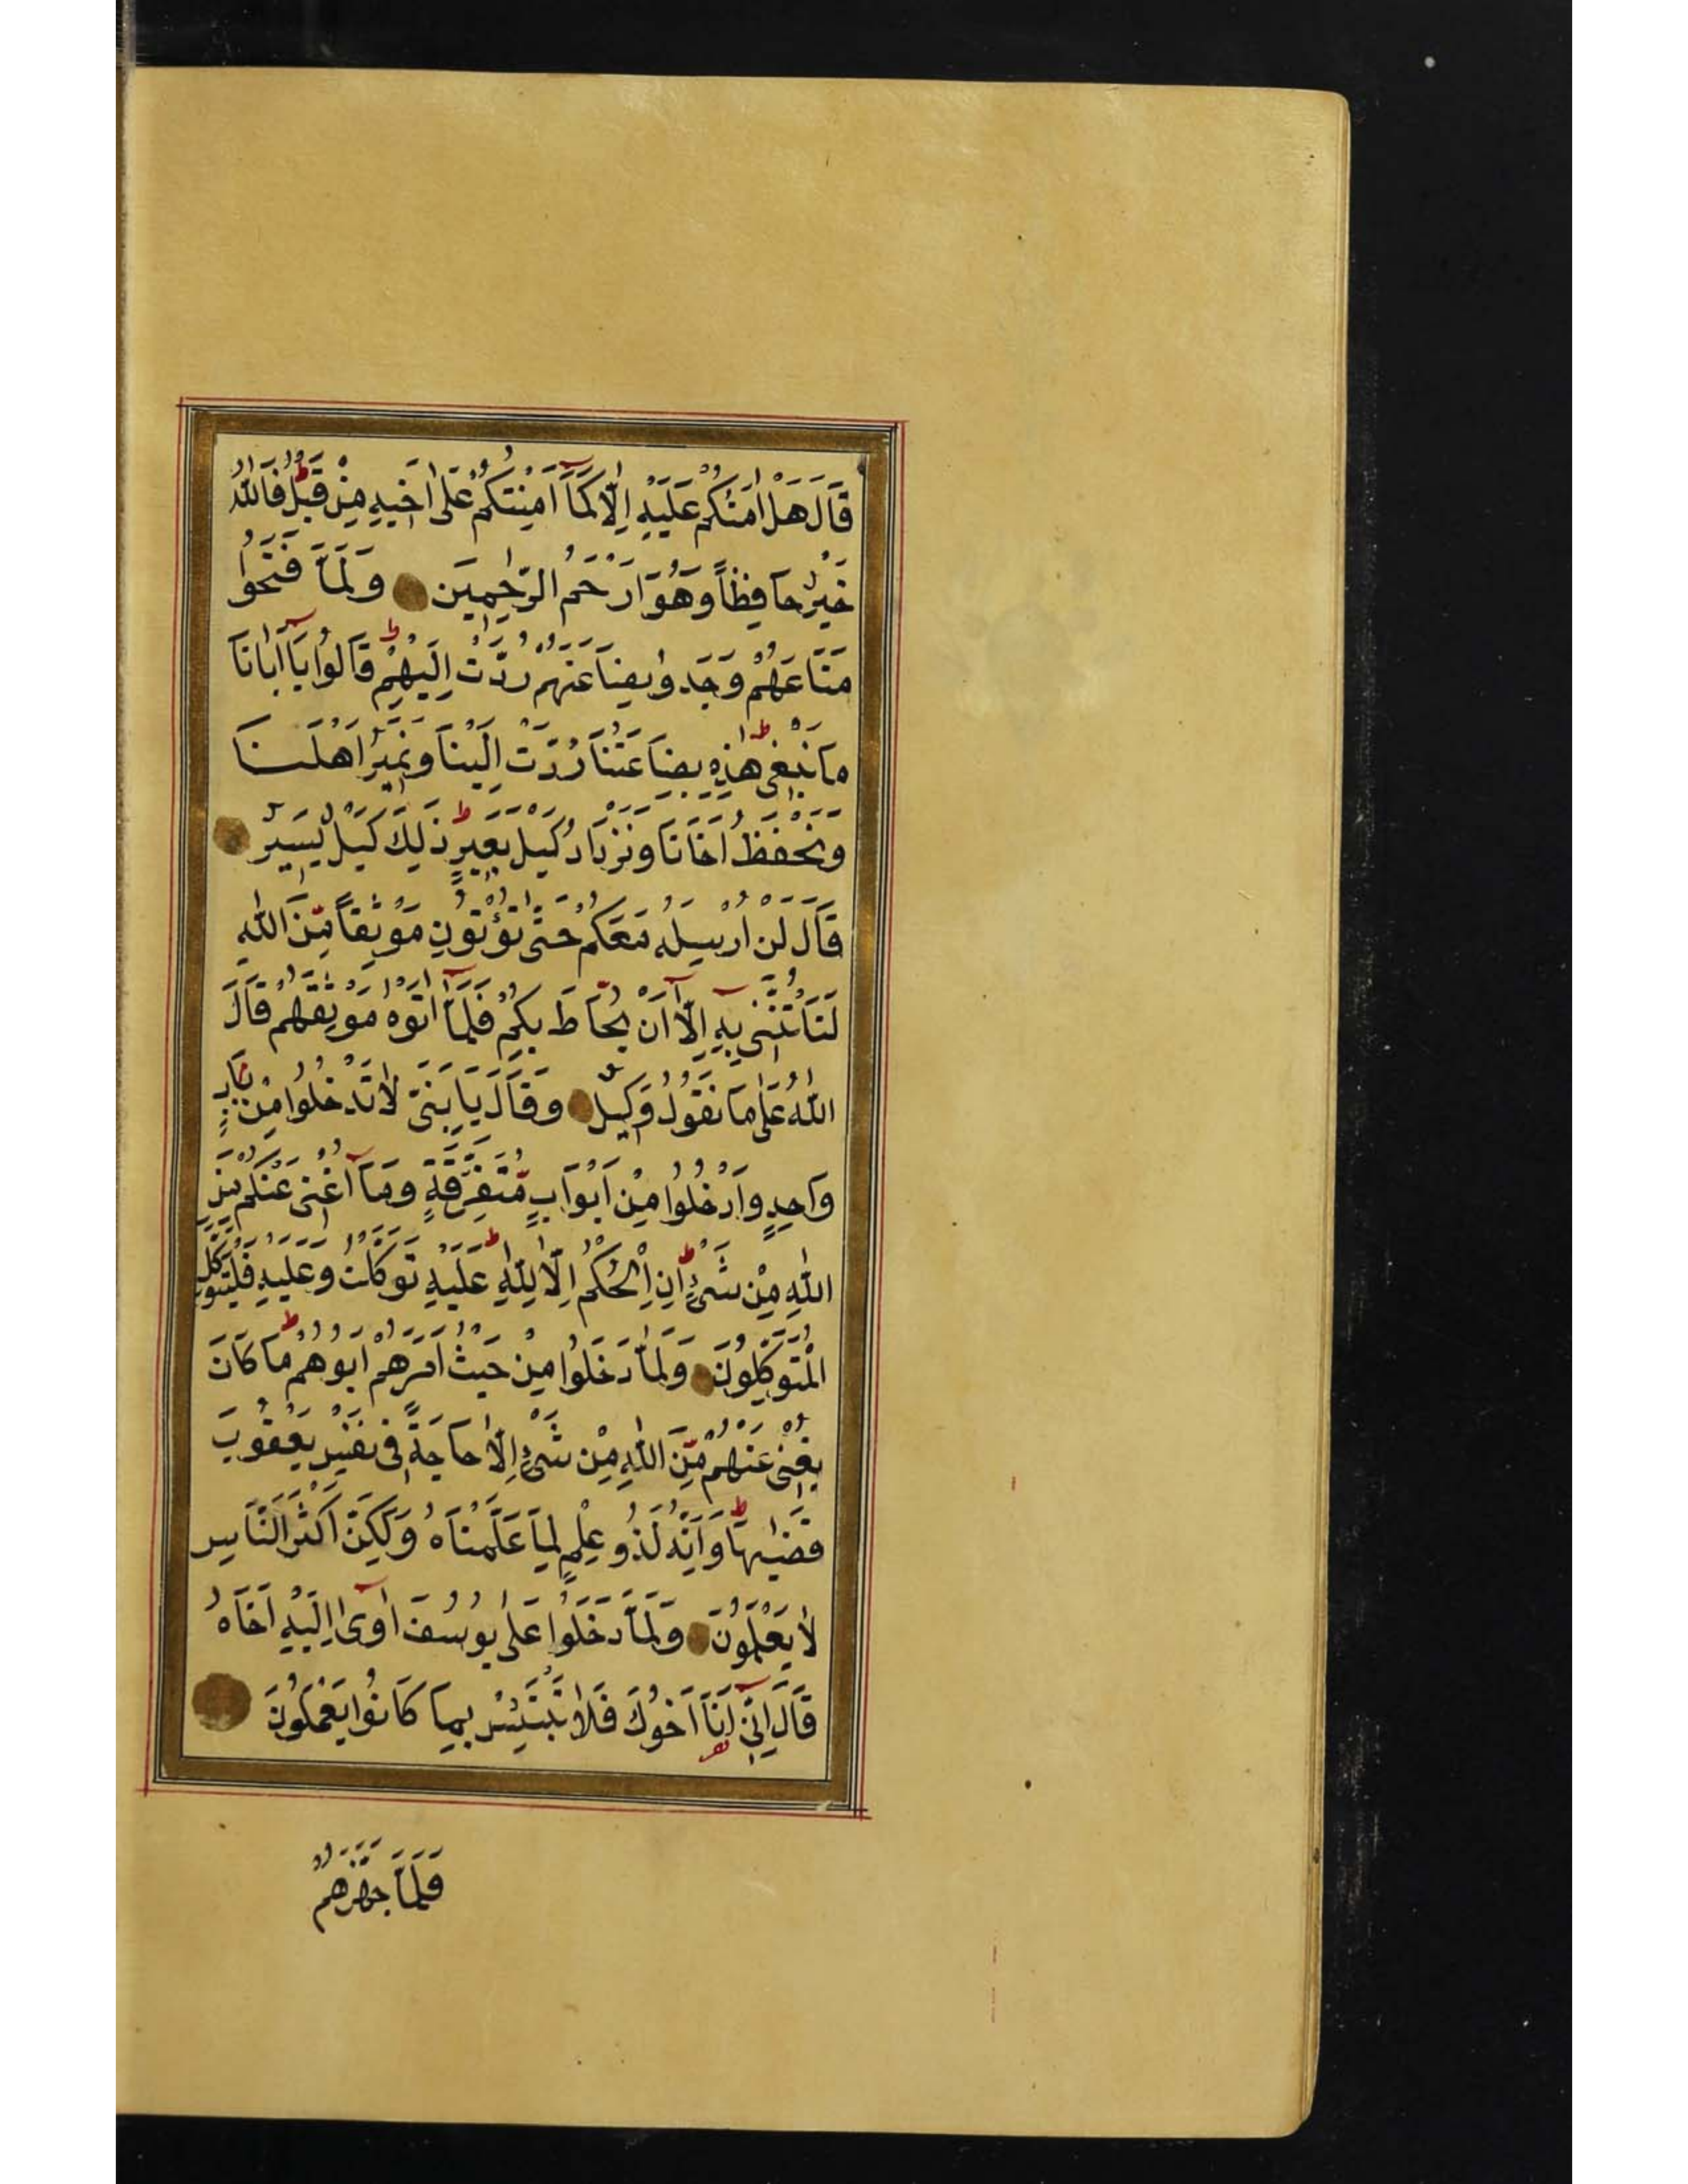 قَالَ هَلْ اٰمَنُكُمْ عَلَيْهِ اِلَّا كَمَآ اَمِنْتُكُمْ عَلٰٓى اَخٖيهِ مِنْ قَبْلُ ط فَاللّٰهُ
خَيْرٌ حَافِظًا وَهُوَ اَرْحَمُ الرّٰحِمٖينَ وَلَمَّا فَتَحُوا
مَتَاعَهُمْ وَجَدُوا بِضَاعَتَهُمْ رُدَّتْ اِلَيْهِمْ ط قَالُوا يَآ اَبَانَا
مَا نَبْغٖى ط هٰذِهٖ بِضَاعَتُنَا رُدَّتْ اِلَيْنَا وَنَمٖيرُ اَهْلَنَا
وَنَحْفَظُ اَخَانَا وَنَزْدَادُ كَيْلَ بَعٖيرٍ ط ذٰلِكَ كَيْلٌ يَسٖيرٌ
قَالَ لَنْ اُرْسِلَهُ مَعَكُمْ حَتّٰى تُؤْتُونِ مَوْثِقًا مِّنَ اللّٰهِ
لَتَأْتُنَّنٖى بِهٖٓ اِلَّآ اَنْ يُّحَاطَ بِكُمْ فَلَمَّآ اٰتَوْهُ مَوْثِقَهُمْ قَالَ
اللّٰهُ عَلٰى مَا نَقُولُ وَكٖيلٌ وَقَالَ يَا بَنِىَّ لَا تَدْخُلُوا مِنْ بَابٍ
وَاحِدٍ وَادْخُلُوا مِنْ اَبْوَابٍ مُّتَفَرِّقَةٍ وَمَآ اُغْنٖى عَنْكُمْ مِنَ
اللّٰهِ مِنْ شَىْءٍ ط اِنِ الْحُكْمُ اِلَّا لِلّٰهِ ط عَلَيْهِ تَوَكَّلْتُ وَعَلَيْهِ فَلْيَتَوَكَّلِ
الْمُتَوَكِّلُونَ وَلَمَّا دَخَلُوا مِنْ حَيْثُ اَمَرَهُمْ اَبُوهُمْ ط مَا كَانَ
يُغْنٖى عَنْهُمْ مِّنَ اللّٰهِ مِنْ شَىْءٍ اِلَّا حَاجَةً فٖى نَفْسِ يَعْقُوبَ
قَضٰيهَا ط وَاِنَّهُ لَذُو عِلْمٍ لِمَا عَلَّمْنَاهُ وَلٰكِنَّ اَكْثَرَ النَّاسِ
لَا يَعْلَمُونَ وَلَمَّا دَخَلُوا عَلٰى يُوسُفَ اٰوٰٓى اِلَيْهِ اَخَاهُ
قَالَ اِنّٖٓى اَنَا اَخُوكَ فَلَا تَبْتَئِسْ بِمَا كَانُوا يَعْمَلُونَ
فَلَمَّا جَهَّزَهُمْ